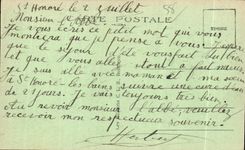 St Honoré le 2 juillet 58
CARTE POSTALE
Monsieur
Je vous écris ce petit mot qui vous
montrera que je pense à vous. J'espère
que le séjour de vous fait du bien
et que vous allez tout à fait mieux
Je suis allé avec maman et ma sœur
à St Honoré les bains suivre une cure
de 21 jours. Je vais toujours très bien.
Au revoir monsieur l'abbé, veuillez
recevoir mon respectueux souvenir.